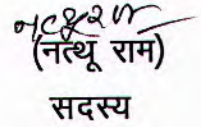 (नत्थू राम)
सदस्य